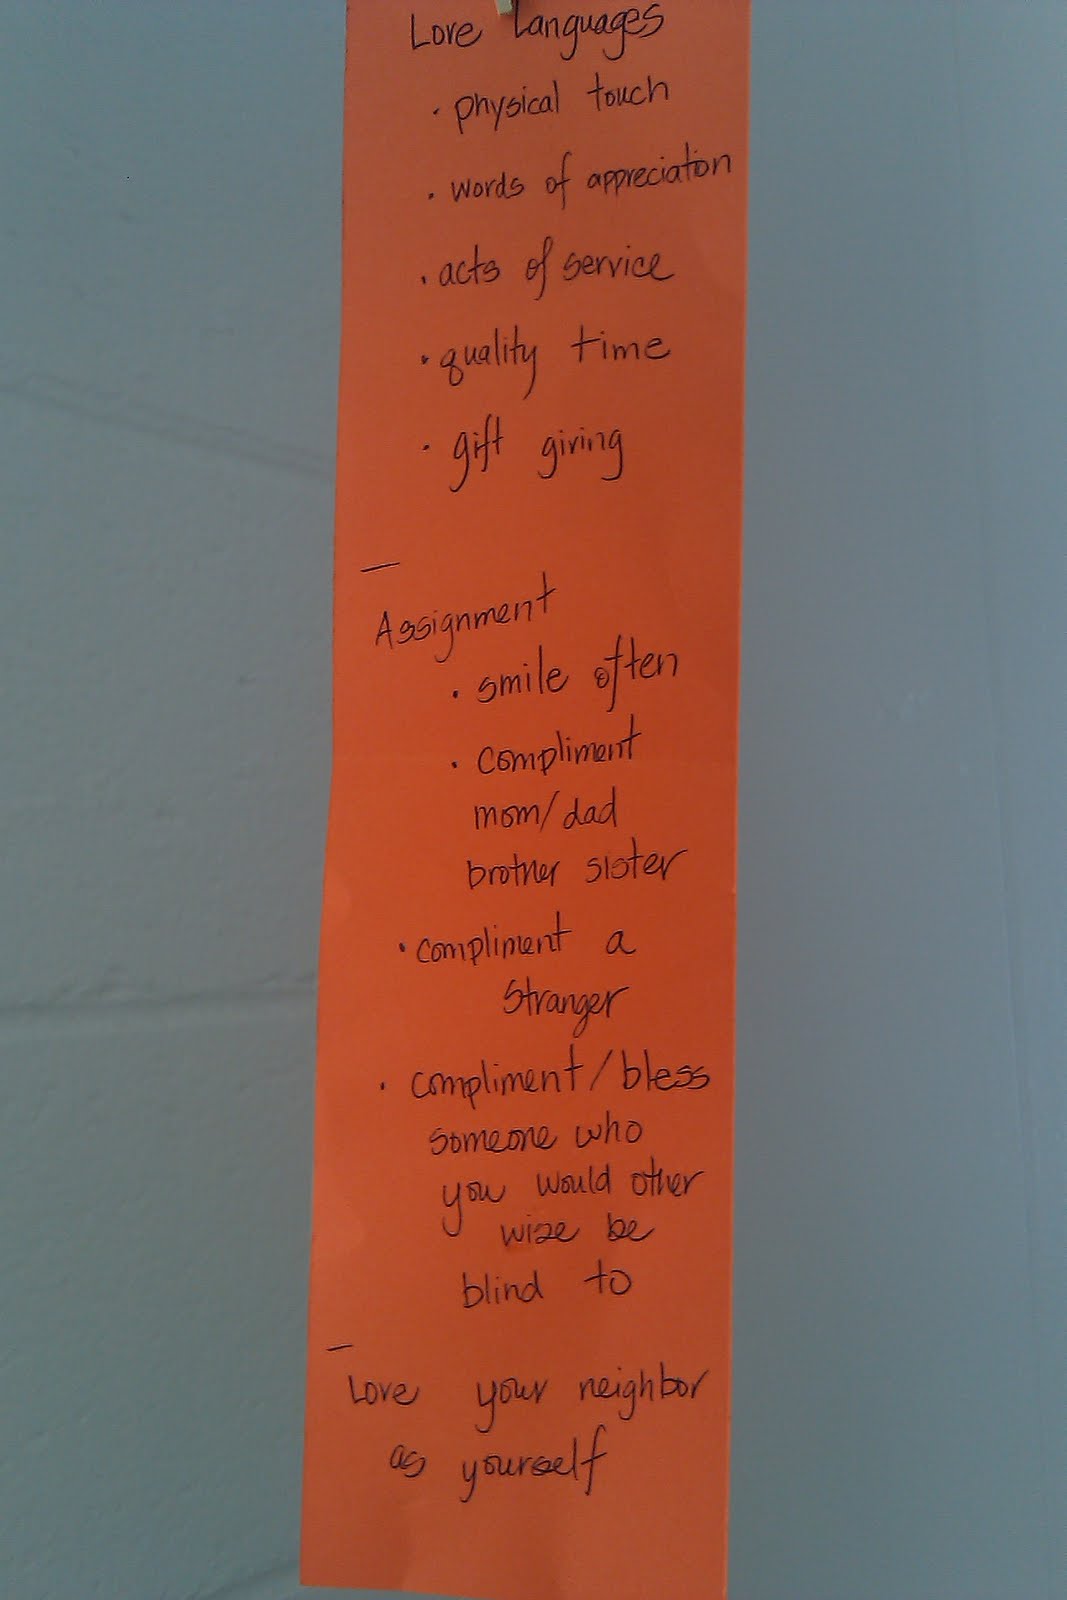 Love Languages
· physical touch
· words of appreciation
· acts of service
· quality time
· gift giving
—
Assignment
· smile often
· compliment
mom/dad
brother sister
· compliment a
stranger
· compliment/bless
someone who
you would other
wise be
blind to
—
Love your neighbor
as yourself